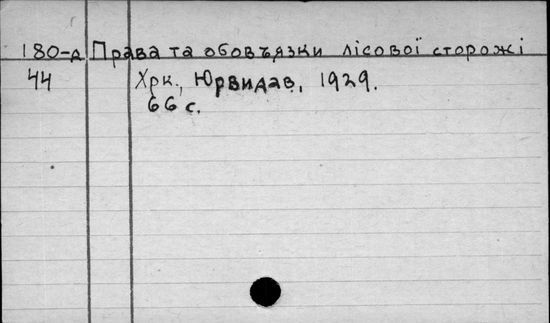 180-д Права та обовъязки лісової сторожі
44 Хрк., Юрвидав, 1929.
66 с.